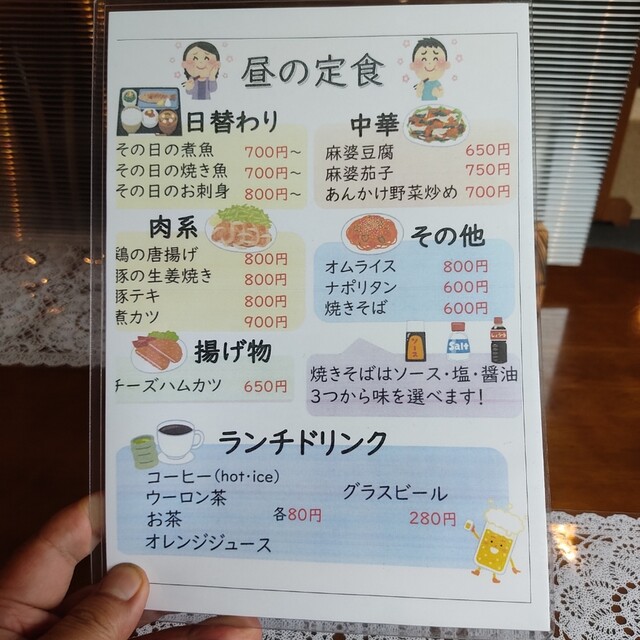 昼の定食
日替わり
その日の煮魚 700円~
その日の焼き魚 700円~
その日のお刺身 800円~
中華
麻婆豆腐 650円
麻婆茄子 750円
あんかけ野菜炒め 700円
肉系
鶏の唐揚げ 800円
豚の生姜焼き 800円
豚テキ 800円
煮カツ 900円
その他
オムライス 800円
ナポリタン 600円
焼きそば 600円
揚げ物
チーズハムカツ 650円
ソース
Salt
焼きそばはソース・塩・醤油
3つから味を選べます!
ランチドリンク
コーヒー(hot・ice)
ウーロン茶
お茶
オレンジジュース
各80円
グラスビール
280円